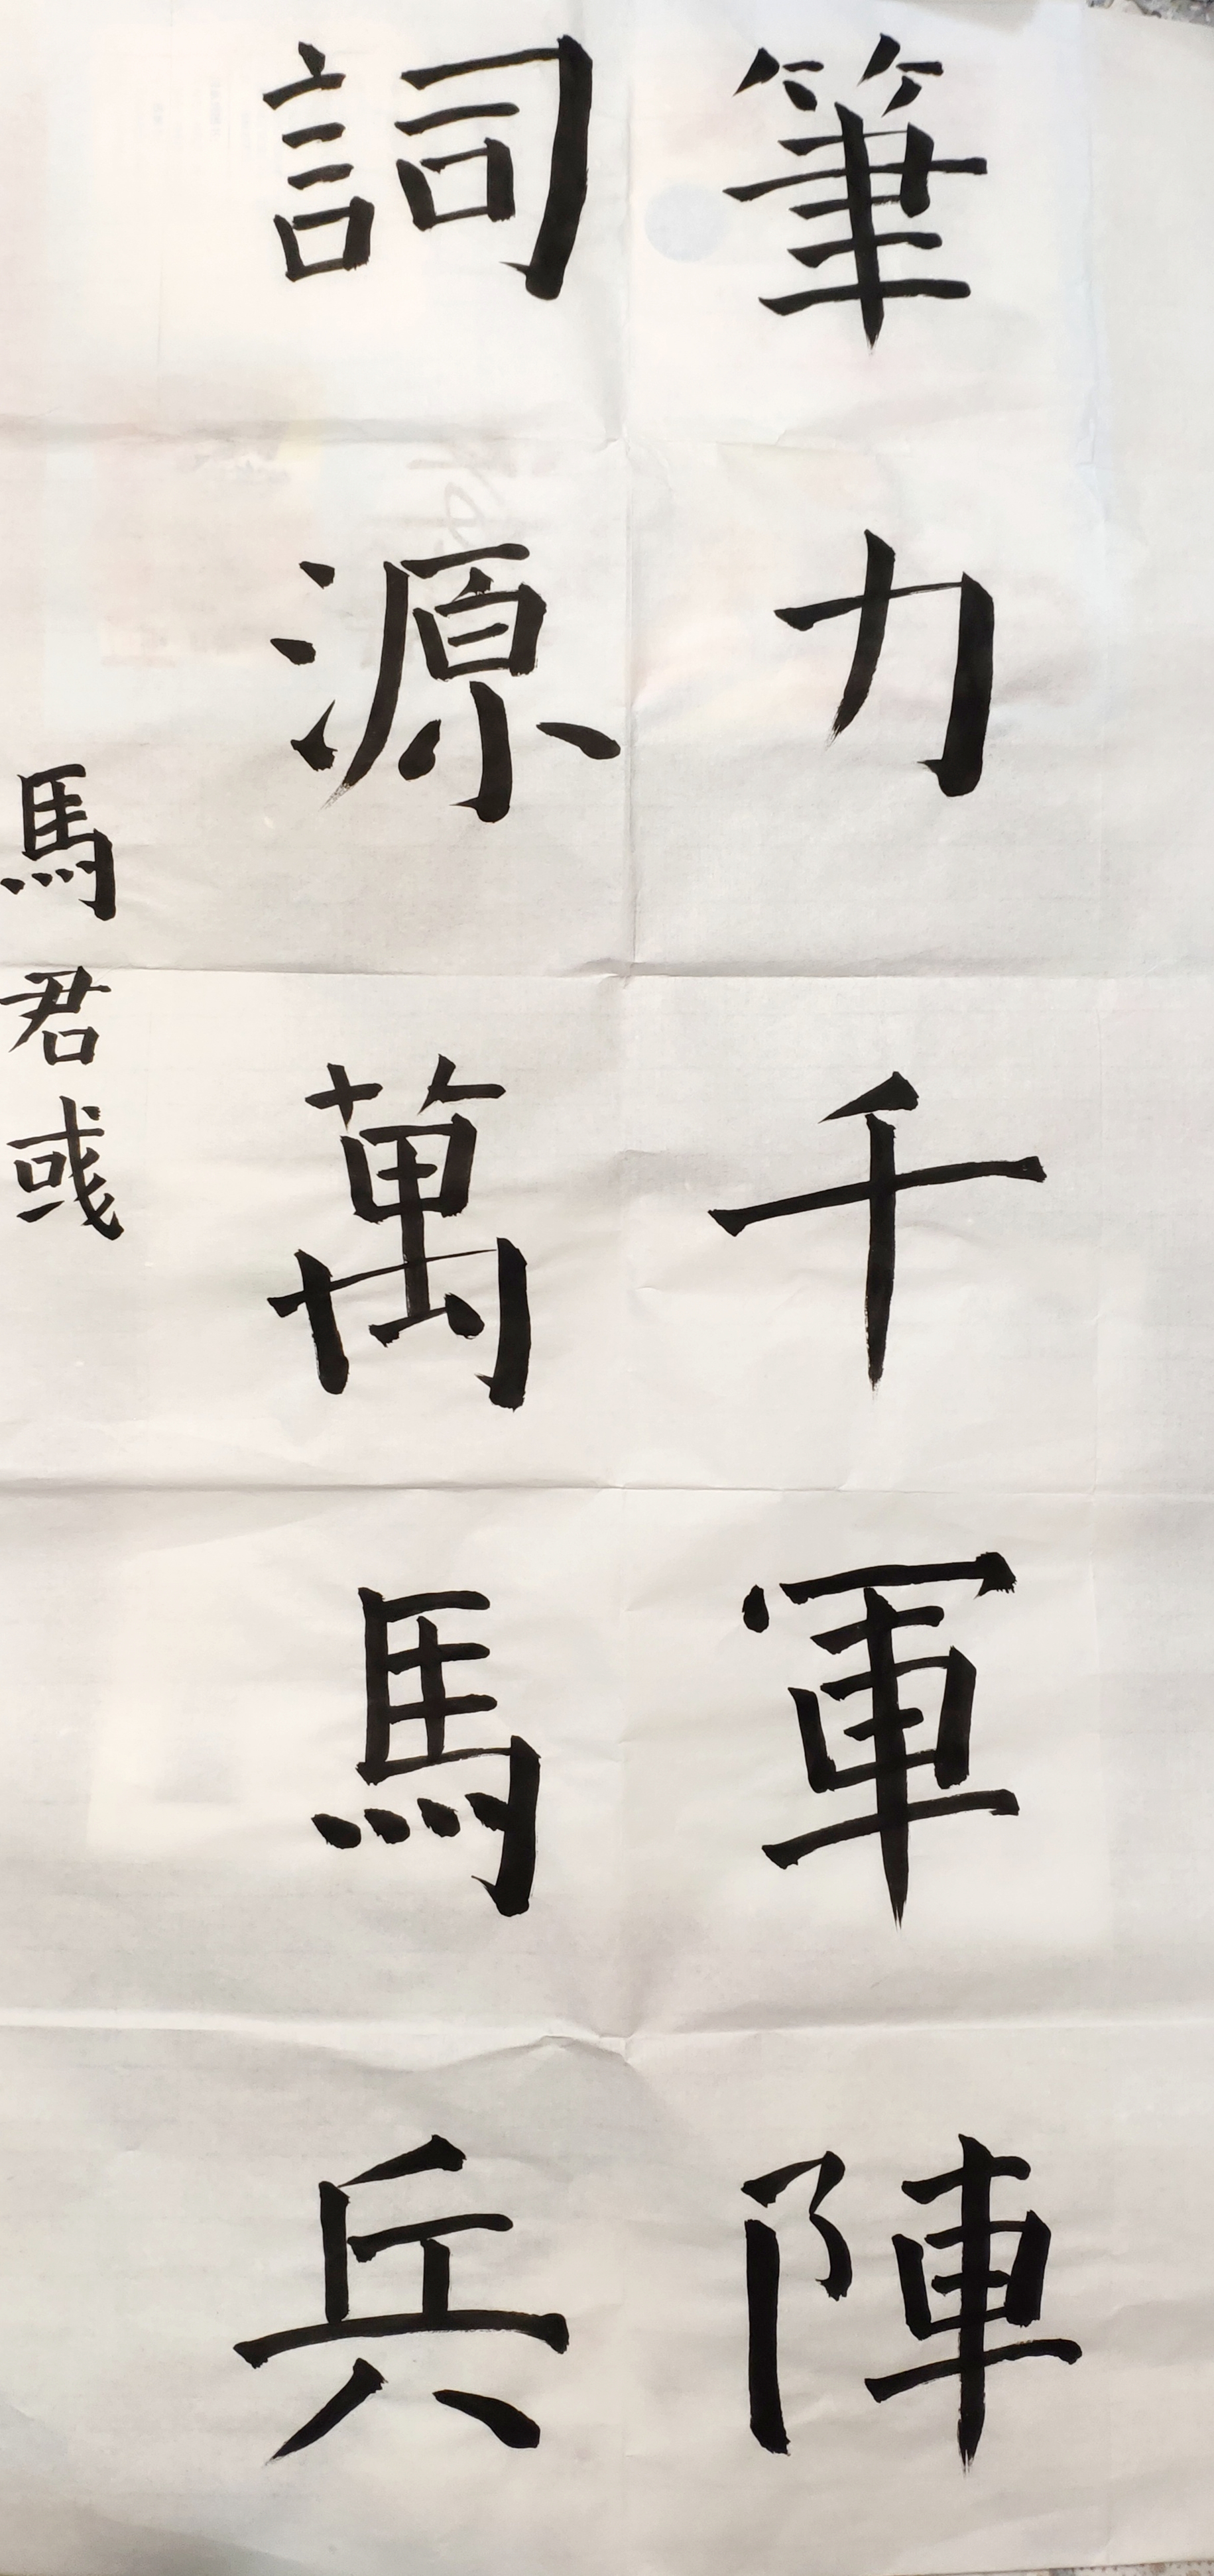 筆力千軍陣
詞源萬馬兵
馬君彧